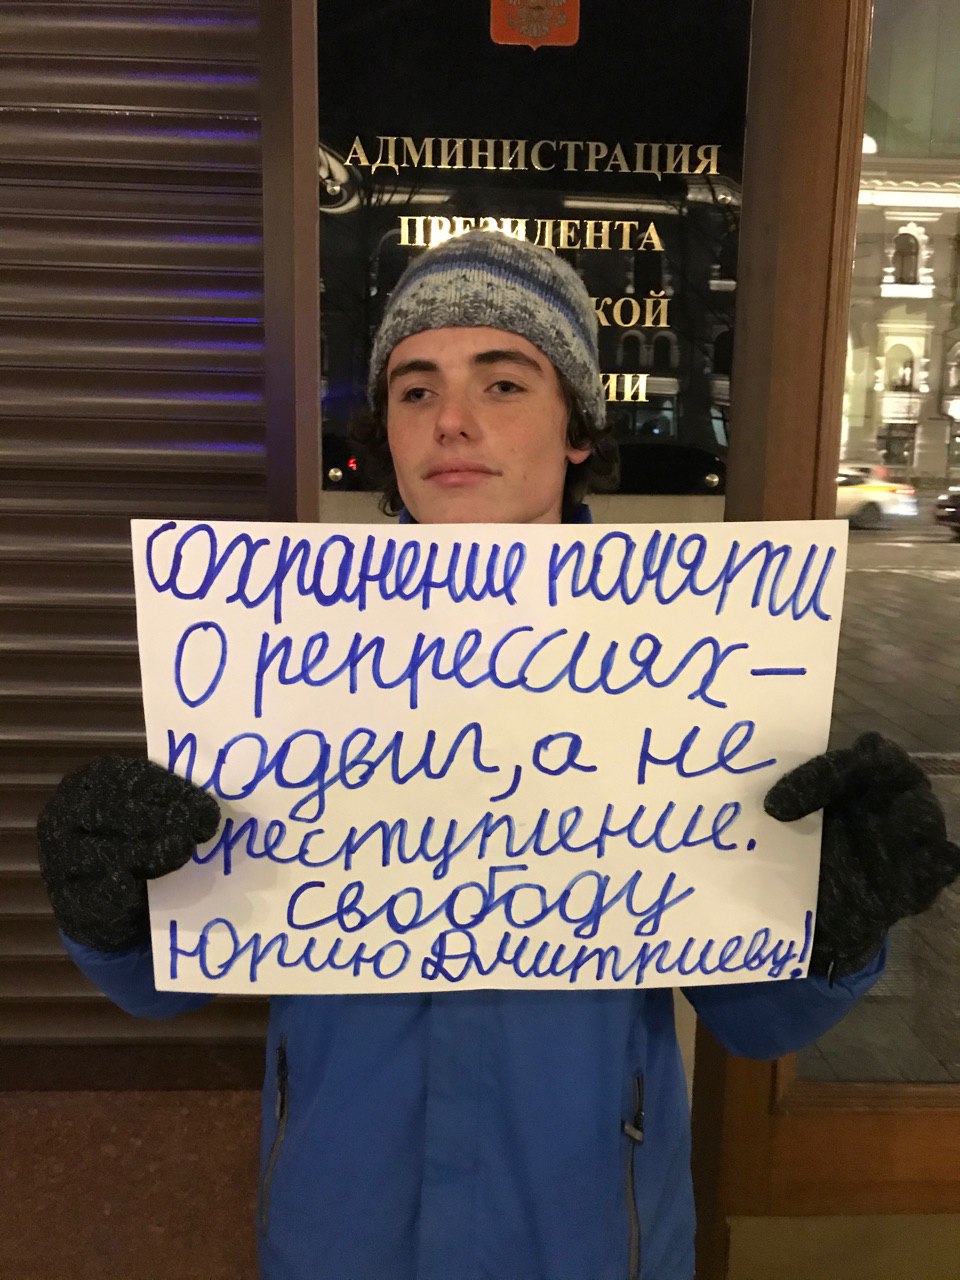 АДМИНИСТРАЦИЯ
ПРЕЗИДЕНТА
КОЙ
ИИ
Сохранение памяти
о репрессиях –
подвиг, а не
преступление.
Свободу
Юрию Дмитриеву!